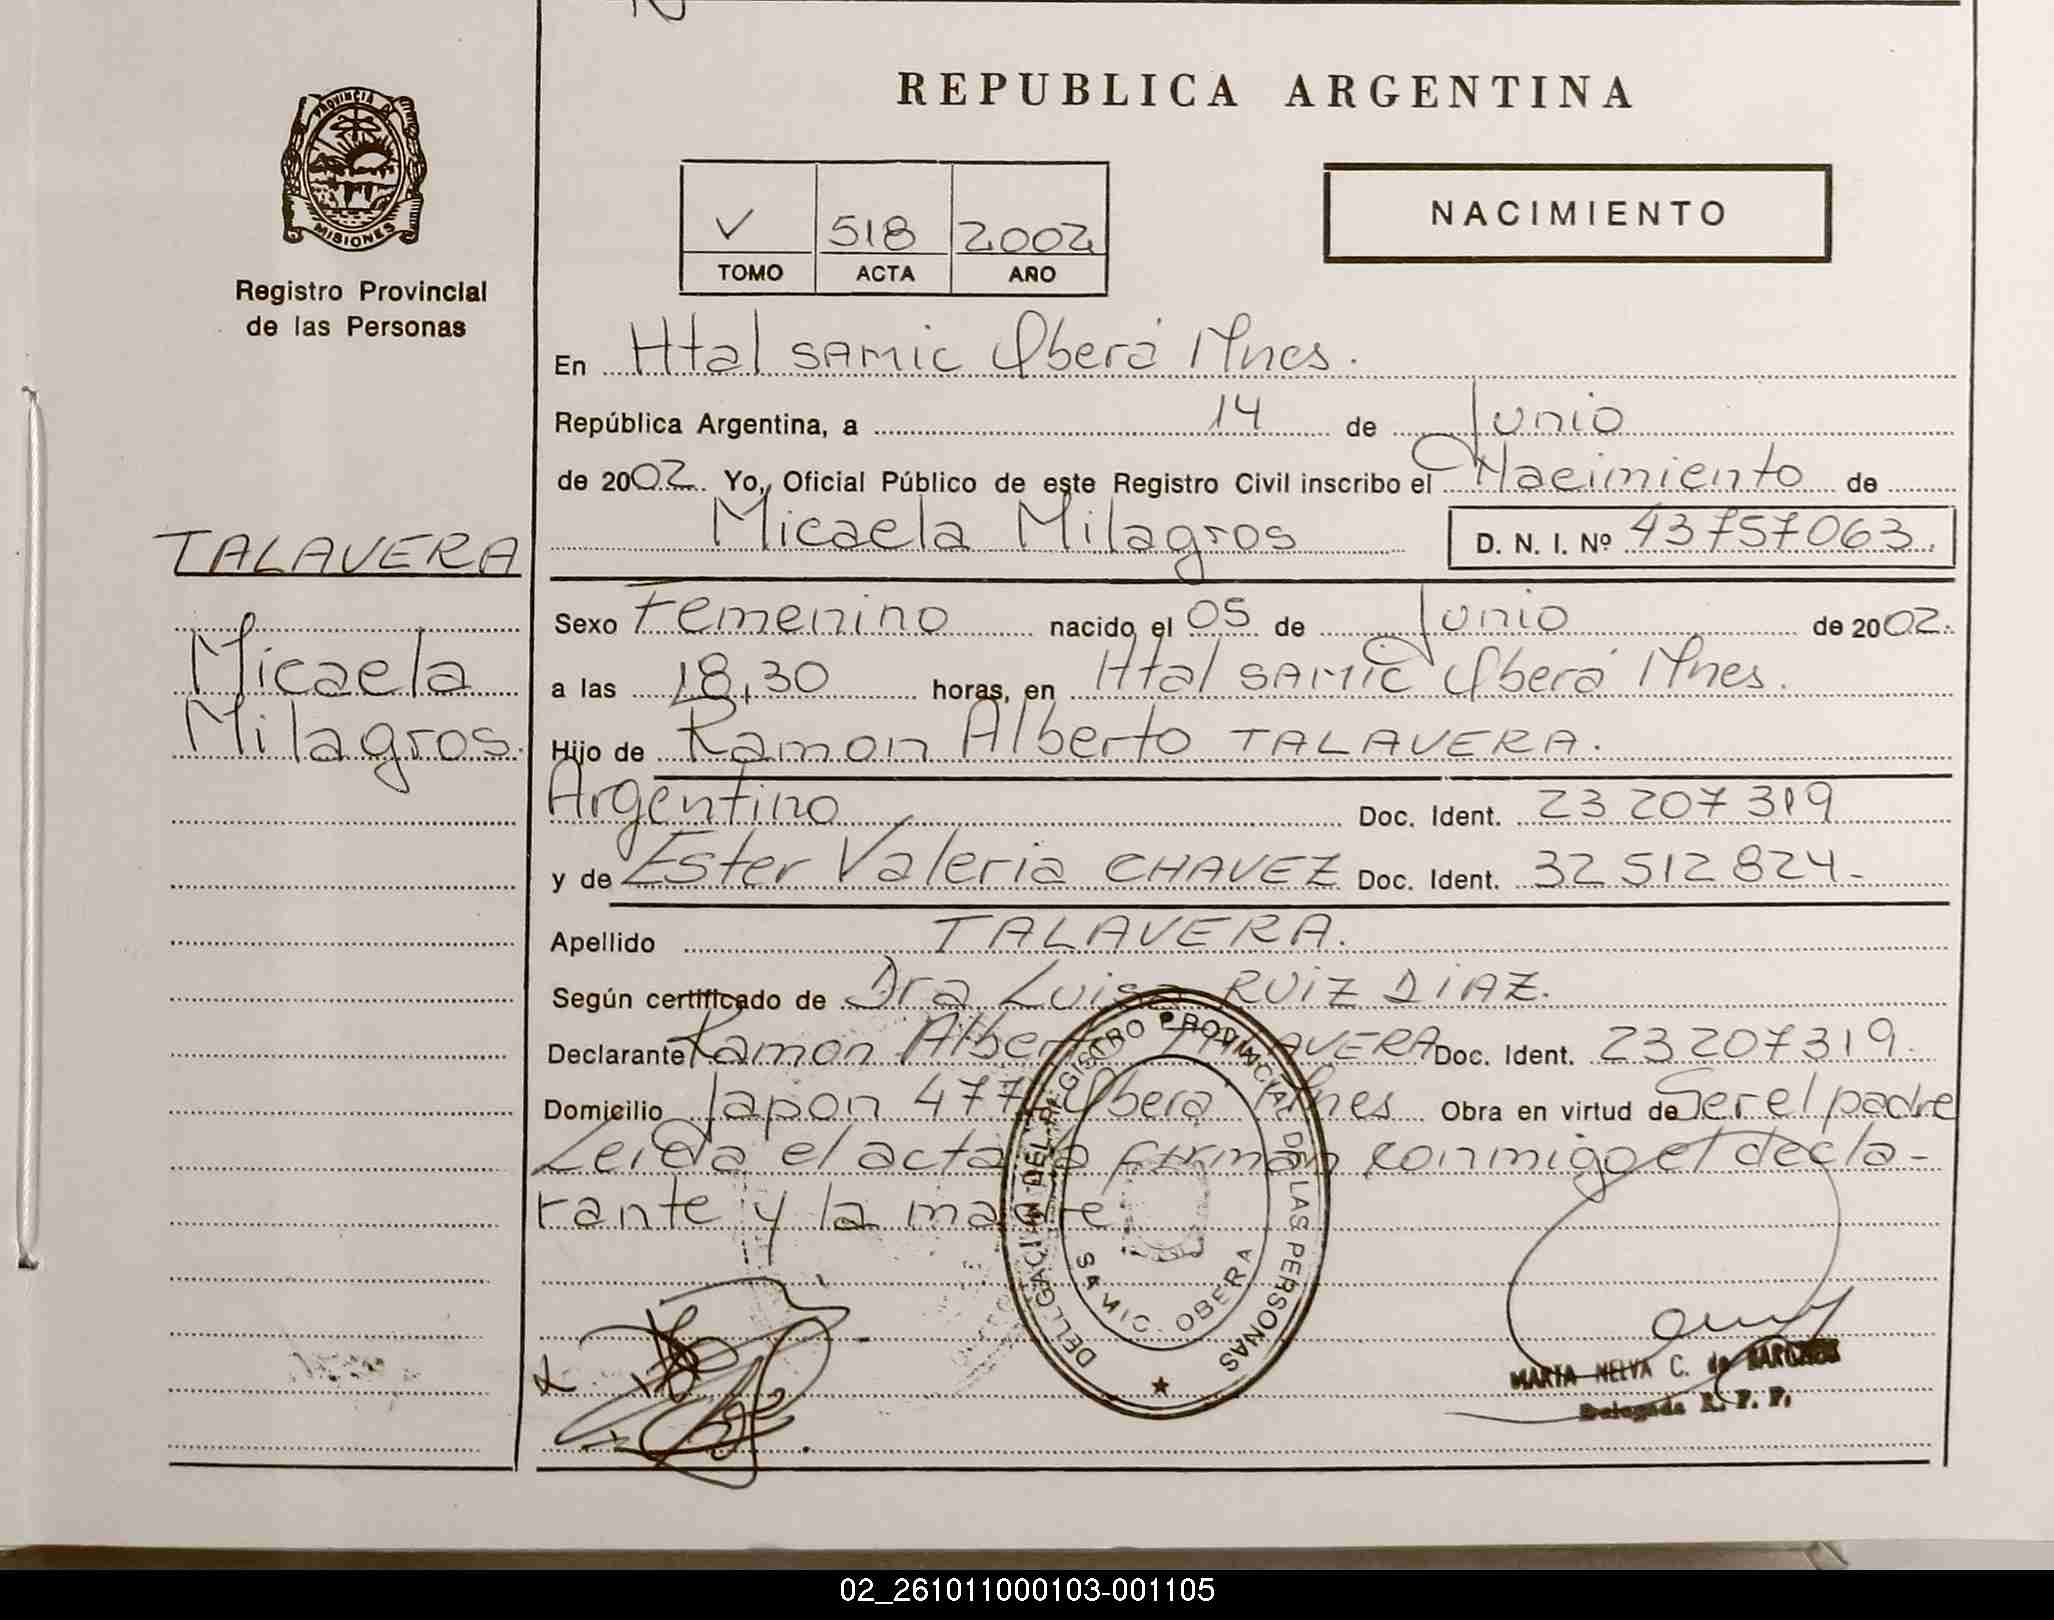 REPUBLICA ARGENTINA
PROVINCIA DE
MISIONES
Registro Provincial
de las Personas
NACIMIENTO
V 518 2002
TOMO ACTA AÑO
En Htal SAMIC Oberá Mnes.
República Argentina, a 14 de Junio
de 2002. Yo, Oficial Público de este Registro Civil inscribo el Nacimiento de
Micaela Milagros D. N. I. Nº 43757063.
TALAVERA
Micaela
Milagros.
Sexo Femenino nacido el 05 de Junio de 2002.
a las 18,30 horas, en Htal SAMIC Oberá Mnes.
Hijo de Ramon Alberto TALAVERA.
Argentino Doc. Ident. 23 207 319
y de Ester Valeria CHAVEZ Doc. Ident. 32 512 824-
Apellido TALAVERA.
Según certificado de Dra Luisa RUIZ DIAZ.
Declarante Ramon Alberto TALAVERA Doc. Ident. 23 207 319.
Domicilio Japon 477 Oberá Mnes Obra en virtud de Ser el padre
Leida el acta la firman conmigo el decla-
rante y la madre
DELEGACION DEL REGISTRO PROVINCIAL DE LAS PERSONAS
SAMIC OBERA
MARIA NELVA C. de
Delegada R. P. P.
02_261011000103-001105